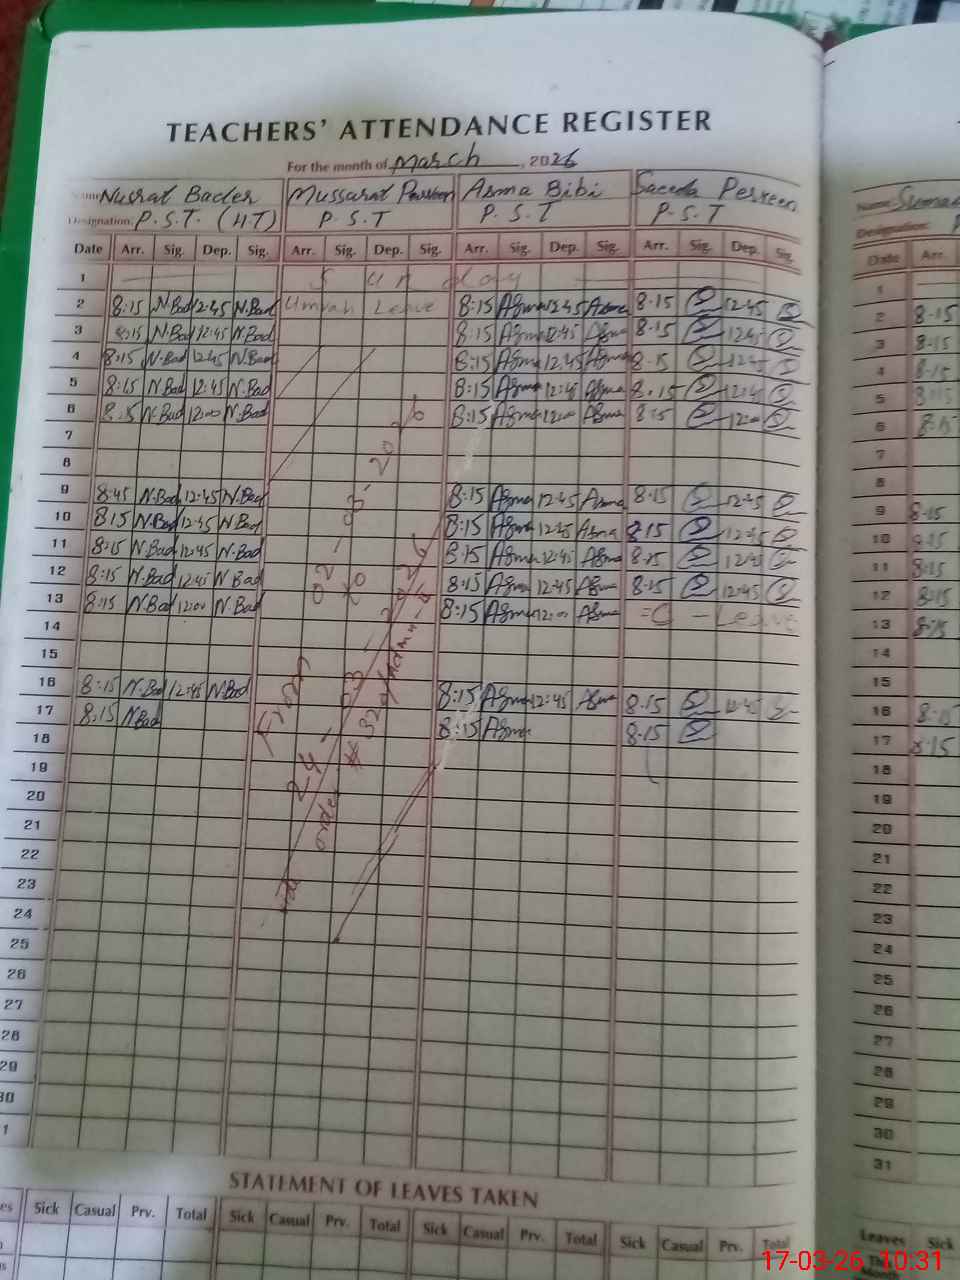 TEACHERS' ATTENDANCE REGISTER
For the month of March, 2026
Nusrat Bader Mussarat Parveen Asma Bibi Saeeda Perveen
Designation: P.S.T. (HT) P.S.T P.S.T P.S.T
Date Arr. Sig. Dep. Sig. Arr. Sig. Dep. Sig. Arr. Sig. Dep. Sig. Arr. Sig. Dep. Sig.
1 Sunday
2 8:15 N.Bad 12:45 N.Bad Umrah Leave 8:15 Asma 12:45 Asma 8.15 12:45
3 8:15 N.Bad 12:45 N.Bad 8:15 Asma 12:45 Asma 8.15 12:45
4 8:15 N.Bad 12:45 N.Bad 8:15 Asma 12:45 Asma 8.15 12:45
5 8:15 N.Bad 12:45 N.Bad 8:15 Asma 12:45 Asma 8.15 12:45
6 N.Bad 12:00 N.Bad 8:15 Asma 12:00 Asma 8:15 12:00
7
8
9 8:45 N.Bad 12:45 N.Bad 8:15 Asma 12:45 Asma 8.15 12:45
10 8:15 N.Bad 12:45 N.Bad 8:15 Asma 12:45 Asma 8.15 12:45
11 8:15 N.Bad 12:45 N.Bad 8:15 Asma 12:45 Asma 8.15 12:45
12 8:15 N.Bad 12:45 N.Bad 8:15 Asma 12:45 Asma 8.15 12:45
13 8:15 N.Bad 12:00 N.Bad 8:15 Asma 12:00 Asma C - Leave
14
15
16 8:15 N.Bad 12:45 N.Bad 8:15 Asma 12:45 Asma 8.15 12:45
17 8:15 N.Bad 8:15 Asma 8.15
18
19
20
21
22
23
24
25
26
27
28
29
30
1
From 02-03-2026
to 24-03-2026
order # 329/Admn-
STATEMENT OF LEAVES TAKEN
Sick Casual Prv. Total Sick Casual Prv. Total Sick Casual Prv. Total Sick Casual Prv. Total
Name:
Designation:
Date Arr.
1
2 8:15
3 8:15
4 8:15
5 8:15
6 8:15
7
8
9 8:15
10 8:15
11 8:15
12 8:15
13 8:15
14
15
16 8:15
17 8:15
18
19
20
21
22
23
24
25
26
27
28
29
30
31
Leaves Sick
17-03-26 10:31